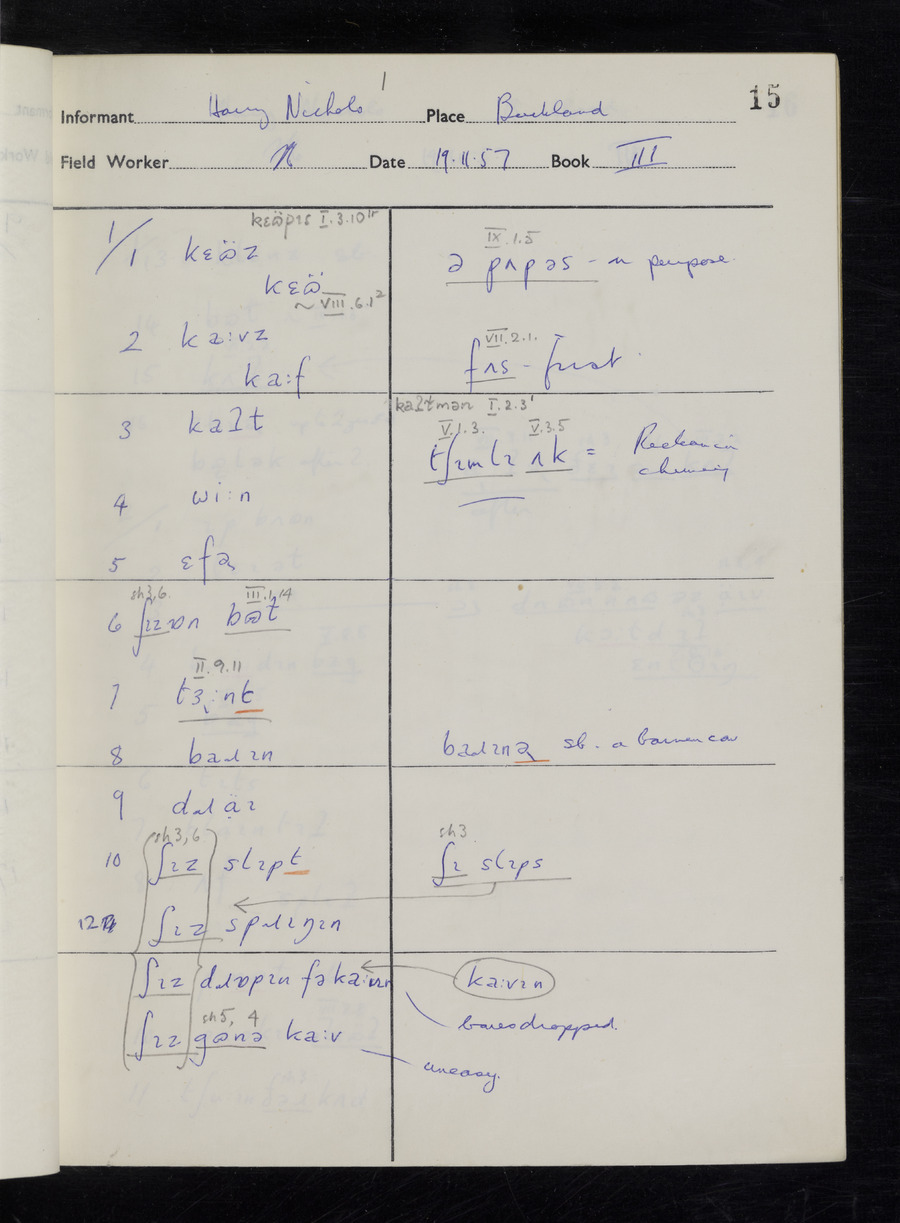 15
Informant Harry Nichols Place Buckland
Field Worker N Date 19.11.57 Book III
kɛöpɪs I.3.10
1/1 kɛöz
kɛö
~ VIII.6.1²
IX.1.5
ə pʌpəs - on purpose.
2 ka:vz
ka:f
VII.2.1.
fʌs - first
3 kaɫt
kaɫtmən I.2.3'
V.1.3. V.3.5
tʃɪmlɪ ʌk =
4 wi:n
5 ɛfɚ
sh3,6. III.1,14
6 ʃɪz ɒn bɷt
II.9.11
7 tɜ˞:nt
8 baɹɪn
baɹɪnɚ sb. a barren cow
9 dɹäɪ
sh3,6
10 ʃɪz slɪpt
sh3
ʃɪ slɪps
12 ʃɪz spɹɪŋɪn
ʃɪz dɹɒpɪn fə ka:vɪn
ka:vɪn
bones dropped.
sh5, 4
ʃɪz gɷnə ka:v
uneasy.